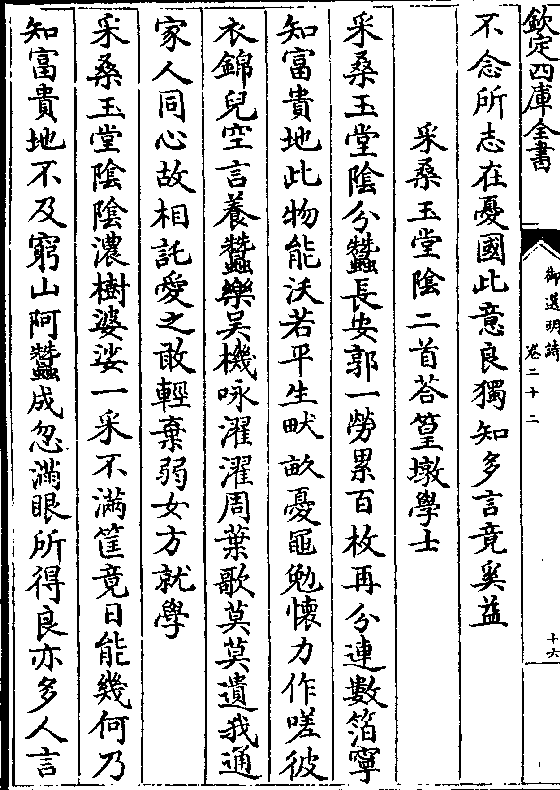 欽定四庫全書
御選明詩
卷二十二
十六
不念所志在憂國此意良獨知多言竟奚益
采桑玉堂陰二首荅篁墩學士
采桑玉堂陰分蠶長安郭一勞累百枚再分連數箔寧
知富貴地此物能沃若平生畎畝憂黽勉懷力作嗟彼
衣錦兒空言養蠶樂吳機咏濯濯周葉歌莫莫遺我通
家人同心故相託愛之敢輕棄弱女方就學
采桑玉堂陰陰濃樹婆娑一采不滿筐竟日能幾何乃
知富貴地不及窮山阿蠶成忽滿眼所得良亦多人言